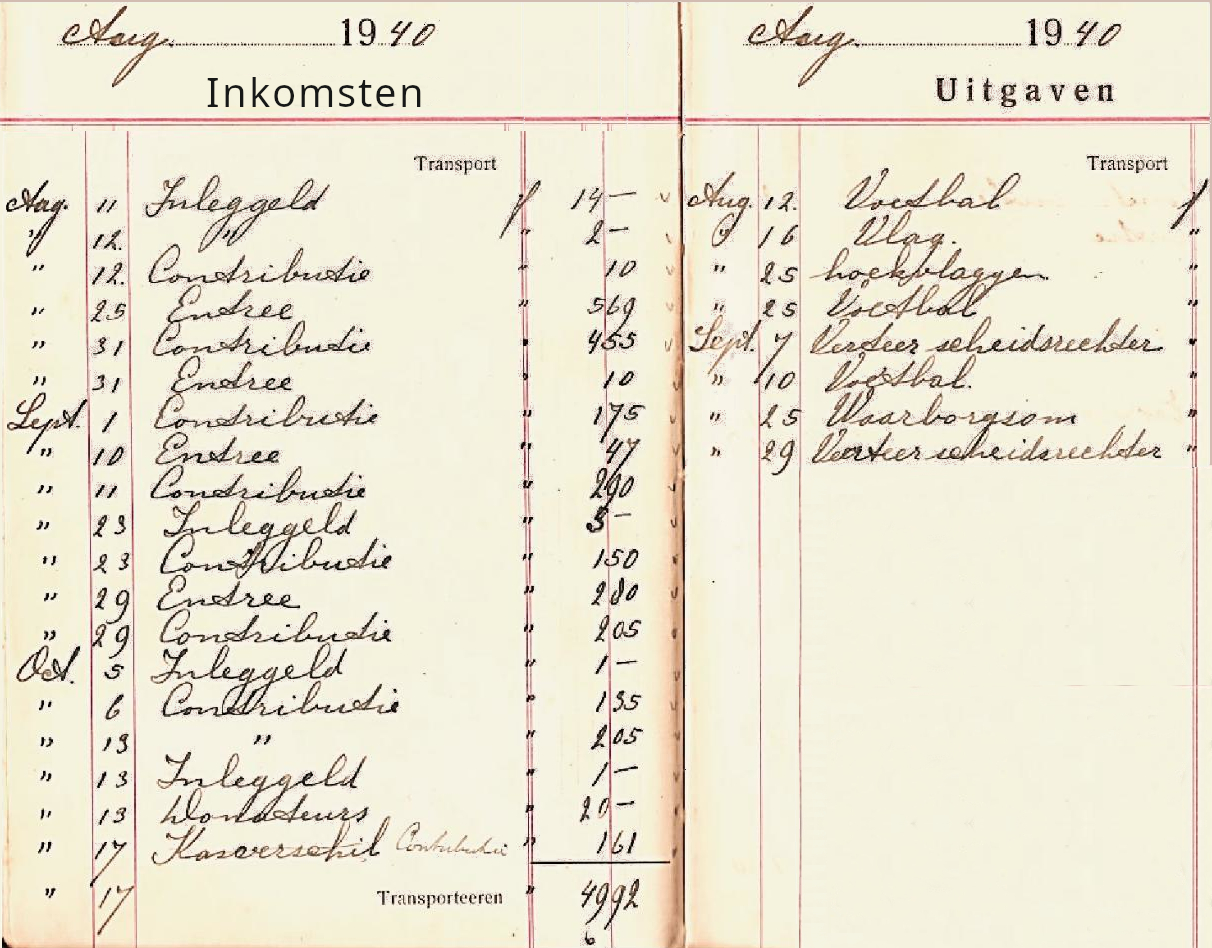 Aug. 1940
Inkomsten
Transport
Aug. 11 Inleggeld f 14 —
" 12. " " 2 —
" 12. Contributie " 10
" 25 Entree " 569
" 31 Contributie " 455
" 31 Entree " 10
Sept. 1 Contributie " 175
" 10 Entree " 47
" 11 Contributie " 290
" 23 Inleggeld " 3 —
" 23 Contributie " 150
" 29 Entree " 280
" 29 Contributie " 205
Oct. 5 Inleggeld " 1 —
" 6 Contributie " 135
" 13 " " 205
" 13 Inleggeld " 1 —
" 13 Donateurs " 20 —
" 17 Kasverschil Contributie " 161
" 17 Transporteeren " 4992
6
Aug. 1940
Uitgaven
Transport
Aug. 12. Voetbal f
" 16 Vlag. "
" 25 hoekvlaggen "
" 25 Voetbal "
Sept. 7 Verteer scheidsrechter "
" 10 Voetbal. "
" 25 Waarborgsom "
" 29 Verteer scheidsrechter "